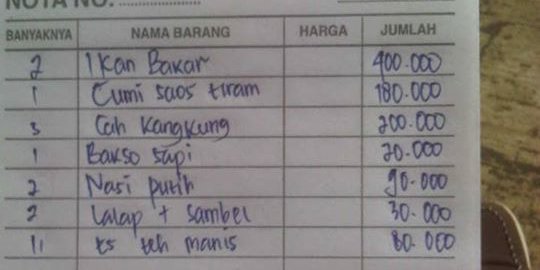 NOTA NO.
BANYAKNYA NAMA BARANG HARGA JUMLAH
2 Ikan Bakar 400.000
1 Cumi saos tiram 180.000
5 Cah Kangkung 200.000
1 Bakso sapi 20.000
2 Nasi putih 90.000
2 Lalap + sambel 30.000
11 es teh manis 80.000